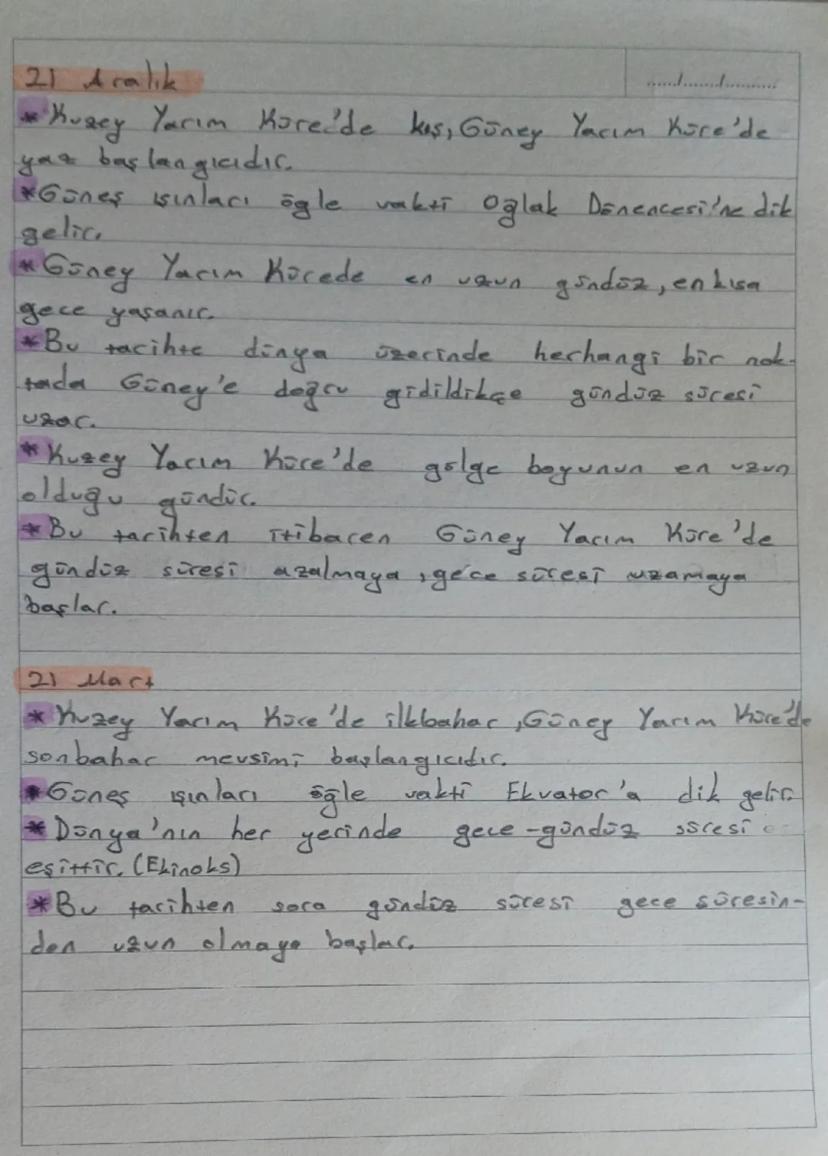 21 Aralık
....../......./...........
*Kuzey Yarım Küre'de kış, Güney Yarım Küre'de
yaz başlangıcıdır.
*Güneş ışınları öğle vakti Oğlak Dönencesi'ne dik
gelir.
*Güney Yarım Kürede en uzun gündüz, en kısa
gece yaşanır.
*Bu tarihte dünya üzerinde herhangi bir nok-
tada Güney'e doğru gidildikçe gündüz süresi
uzar.
*Kuzey Yarım Küre'de gölge boyunun en uzun
olduğu gündür.
*Bu tarihten itibaren Güney Yarım Küre'de
gündüz süresi azalmaya, gece süresi uzamaya
başlar.
21 Mart
*Kuzey Yarım Küre'de ilkbahar, Güney Yarım Küre'de
sonbahar mevsimi başlangıcıdır.
*Güneş ışınları öğle vakti Ekvator'a dik gelir.
*Dünya'nın her yerinde gece-gündüz süresi
eşittir. (Ekinoks)
*Bu tarihten sora gündüz süresi gece süresin-
den uzun olmaya başlar.